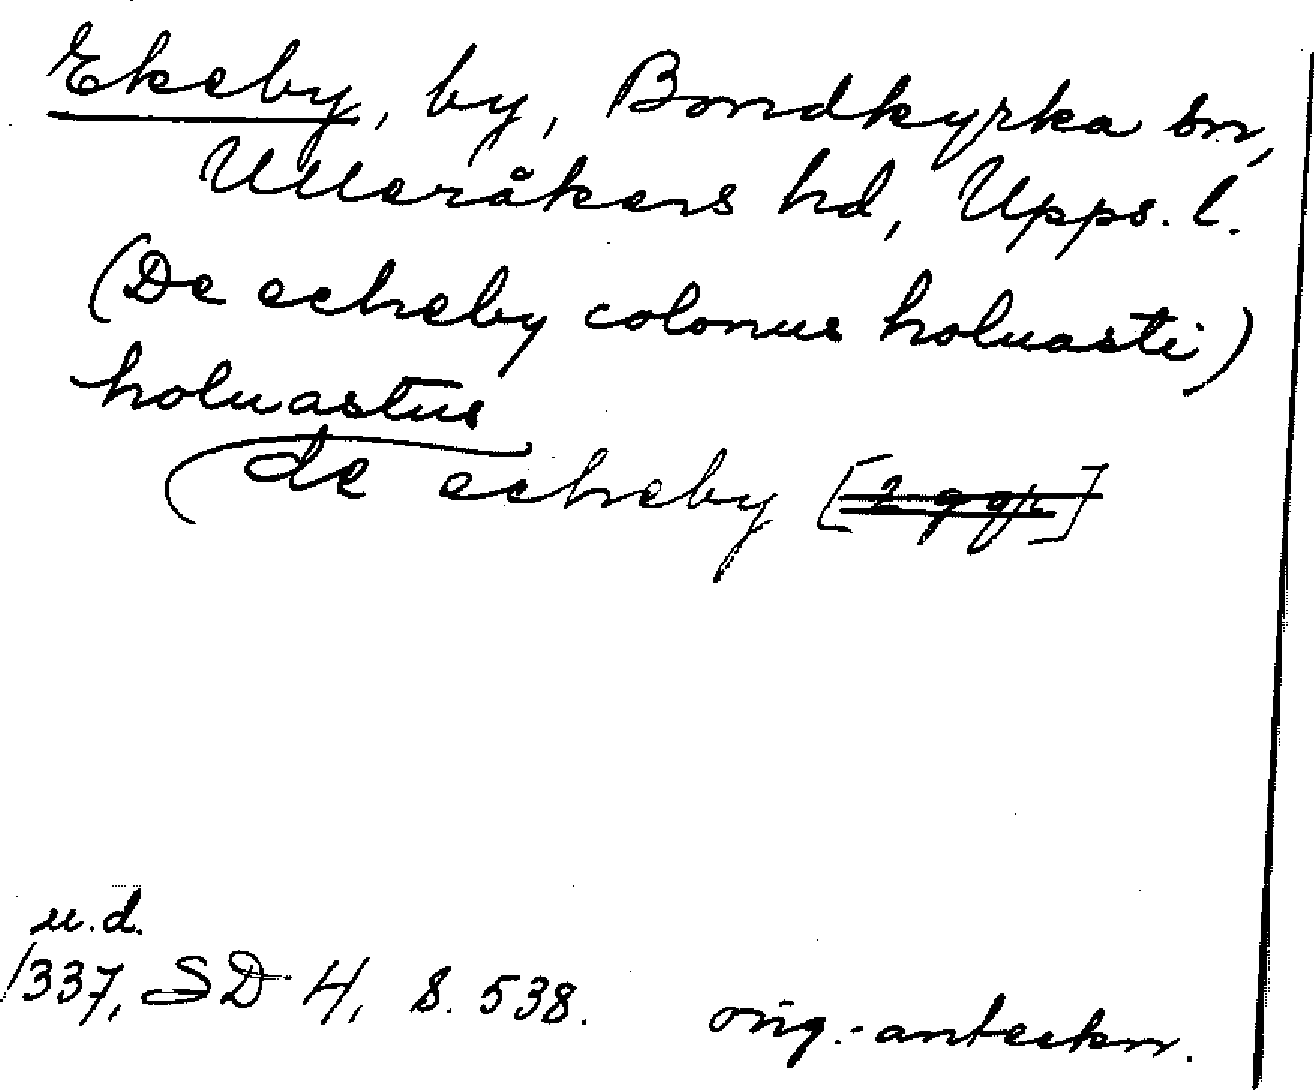 Ekeby, by, Bondkyrka sn,
Ulleråkers hd, Upps. l.
(De echeby colonus holuasti)
holuastus
de echeby [2 ggr]
u.d.
1337, SD 4, s. 538. orig.-anteckn.